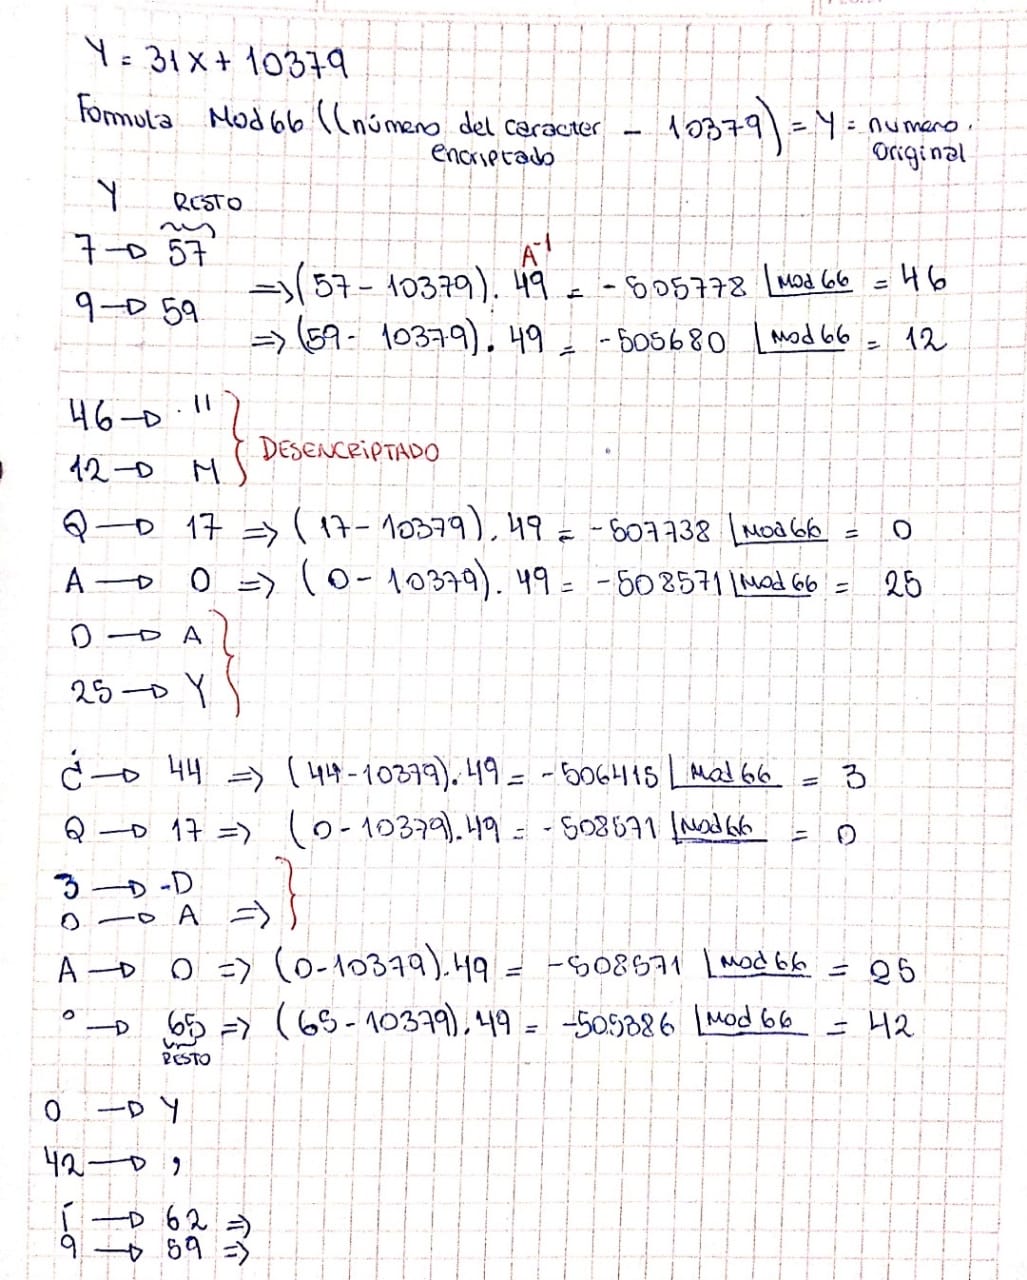 Y = 31x + 10379
Formula Mod 66 ((número del caracter encriptado - 10379) = Y = numero. Original
Y RESTO
7 → 57
A⁻¹
⇒ (57 - 10379). 49 = -505778 |Mod 66 = 46
9 → 59
⇒ (59 - 10379). 49 = -505680 |Mod 66 = 12
46 → "
12 → M
DESENCRIPTADO
Q → 17 ⇒ (17 - 10379). 49 = -507738 |Mod 66 = 0
A → 0 ⇒ (0 - 10379). 49 = -508571 |Mod 66 = 25
0 → A
25 → Y
¿ → 44 ⇒ (44-10379). 49 = -506415 |Mod 66 = 3
Q → 17 ⇒ (0 - 10379). 49 = -508571 |Mod 66 = 0
3 → -D
0 → A ⇒
A → 0 ⇒ (0-10379). 49 = -508571 |Mod 66 = 25
° → 65 ⇒ (65 - 10379). 49 = -505386 |Mod 66 = 42
RESTO
0 → Y
42 → ,
Í → 62 ⇒
9 → 59 ⇒